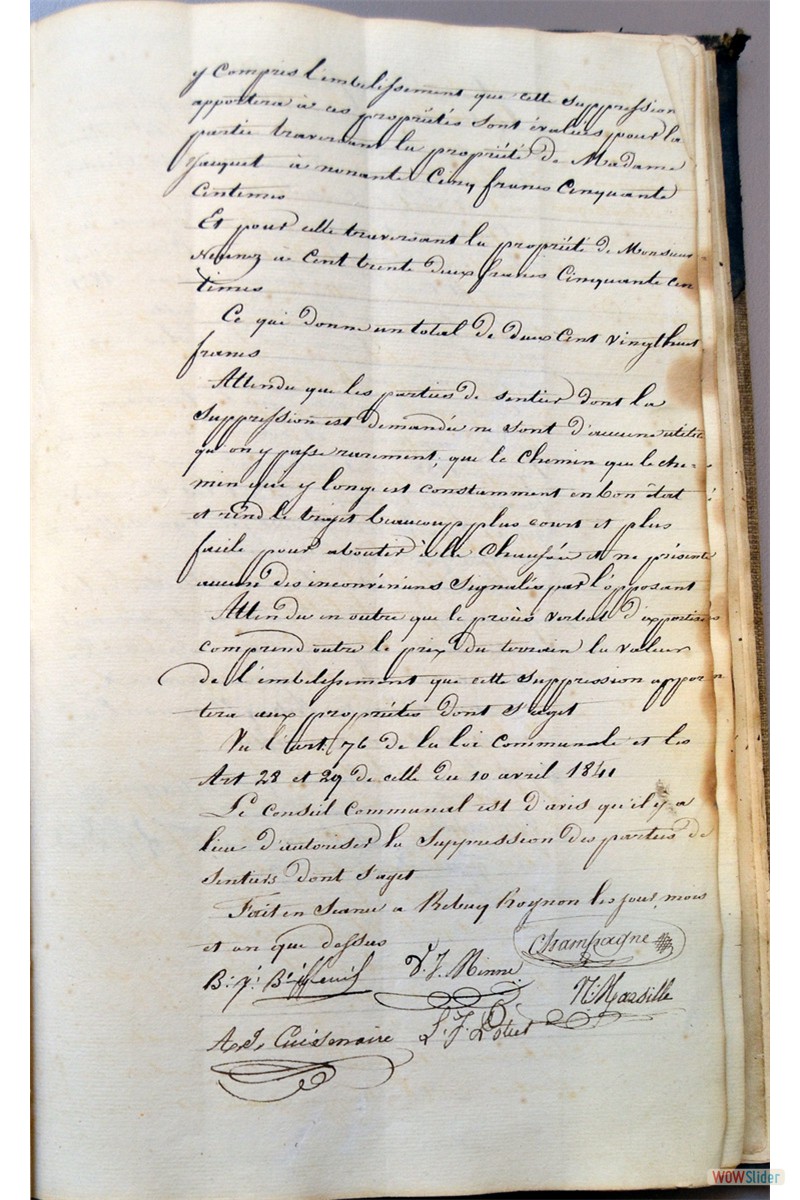 y Compris l'embelissement que cette Suppression
apportera à ces propriétés sont évalués pour la
partie traversant la propriété de Madame
à nonante Cinq francs Cinquante
Centimes
Et pour celle traversant la propriété de Monsieur
a Cent trente deux francs Cinquante cen
times
Ce qui donne un total de deux Cent vingt huit
francs
Attendu que les parties de sentier dont la
Suppression est demandée ne sont d'aucune utilité
qu'on y passe rarement, que le Chemin que le che-
min que y longe est constamment en bon état
et rend le trajet beaucoup plus court et plus
facile pour aboutir à la Chaussée et ne présente
aucun des inconvéniens Signalés par l'opposant
Attendu en outre que le procès verbal d'expertise
comprend outre le prix du terrain la valeur
de l'embelissement que cette Suppression appor
tera aux propriétés dont S'aget
Vu l'art. 76 de la loi Communale et les
Art 28 et 29 de celle du 10 avril 1841
Le Conseil Communal est d'avis qu'il y a
lieu d'autoriser la Suppression des parties de
Sentiers dont s'aget
Fait en Séance a Rebecq Rognon les jour, mois
et an que dessus
Champagne
D. J. Minne
N. Marsille
A. J. Cuisenaire
WOWSlider